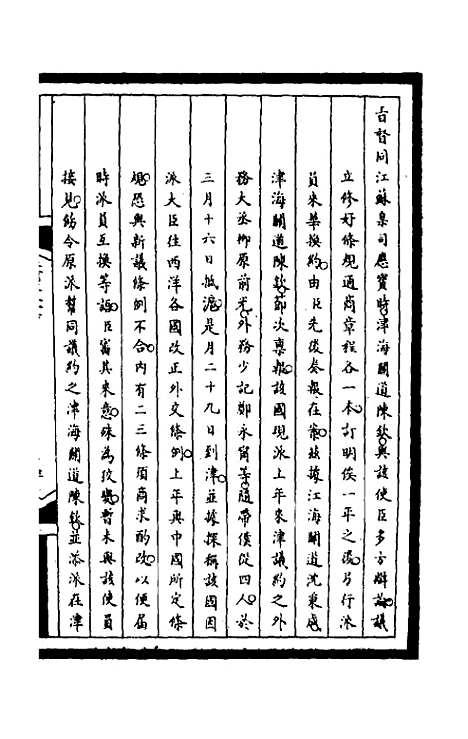 旨督同江蘇臬司應寶時津海關道陳欽與該使臣多方辯論議
立修好條規通商章程各一本訂明俟一年之後另行派
員來華換約由臣先後奏報在案茲據江海關道沈秉成
津海關道陳欽節次稟報該國現派上年來津議約之外
務大丞柳原前光外務少記鄭永甯等隨帶僕從四人於
三月十六日抵滬是月二十九日到津並據探稱該國因
派大臣往西洋各國改正外交條例上年與中國所定條
規恐與新議條例不合內有二三條須商求酌改以便屆
時派員互換等語臣審其來意殊為狡變暫未與該使員
接見飭令原派幫同議約之津海關道陳欽並添派在津